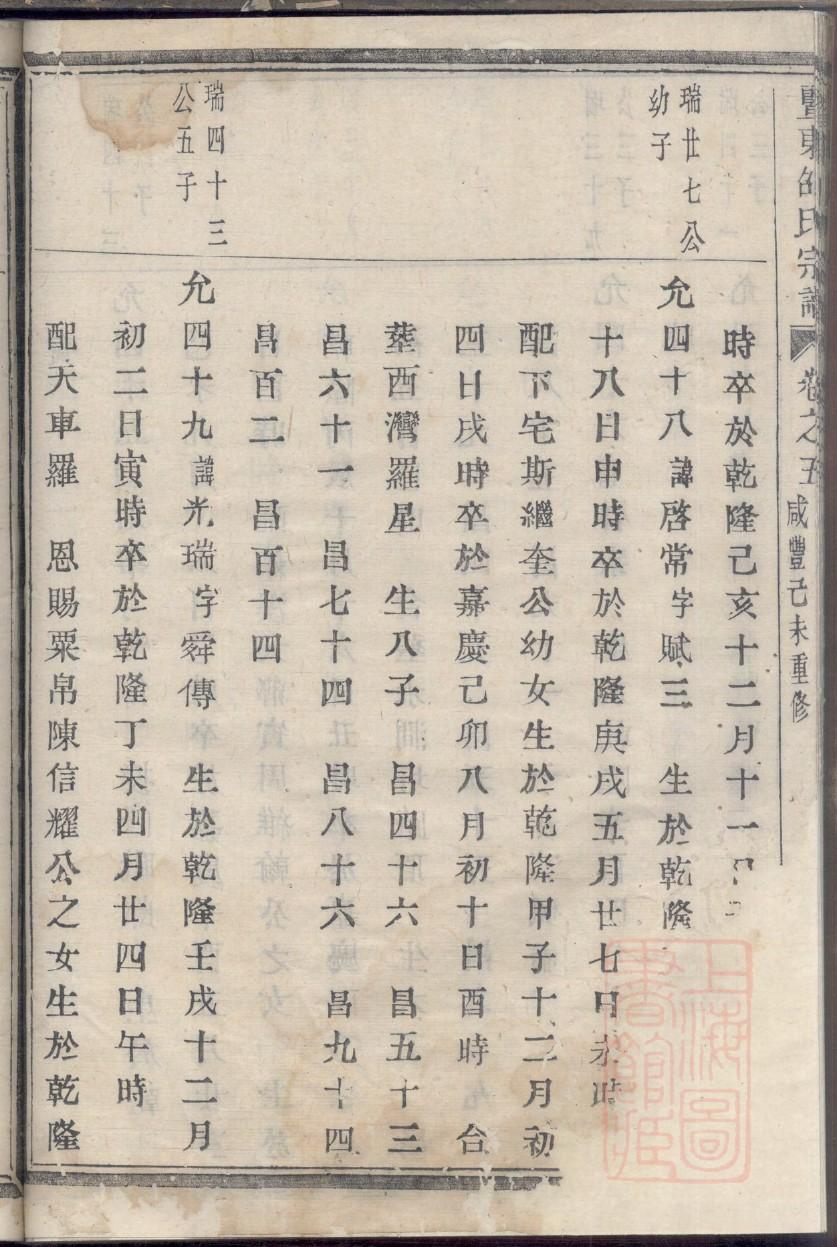 暨東的氏宗譜 卷之五 咸豐己未重修
時卒於乾隆己亥十二月十一
瑞廿七公
幼子
允四十八諱啓常字賦三 生於乾隆
十八日申時卒於乾隆庚戌五月廿七日未時
配下宅斯繼奎公幼女生於乾隆甲子十二月初
四日戌時卒於嘉慶己卯八月初十日酉時 合
葬西灣羅星 生八子 昌四十六 昌五十三
昌六十一 昌七十四 昌八十六 昌九十四
昌百二 昌百十四
瑞四十三
公五子
允四十九諱光瑞字舜傳 生於乾隆壬戌十二月
初二日寅時卒於乾隆丁未四月廿四日午時
配天車羅 恩賜粟帛陳信耀公之女生於乾隆
上海圖
書館藏